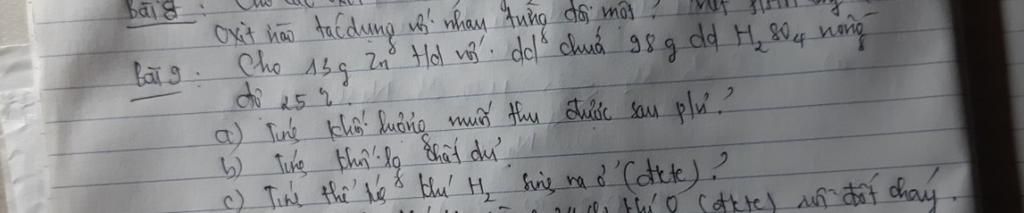 Bài 8: Cho các
oxit nào tác dụng với nhau từng đôi một?
Bài 9: Cho 13g Zn t/d với dd chứa 98g dd H2SO4 nồng
độ 25%.
a) Tính khối lượng muối thu được sau p/ứ?
b) Tính khối lg chất dư.
c) Tính thể tích khí H2 sinh ra ở (đktc)?
khí O (đktc) đốt cháy.